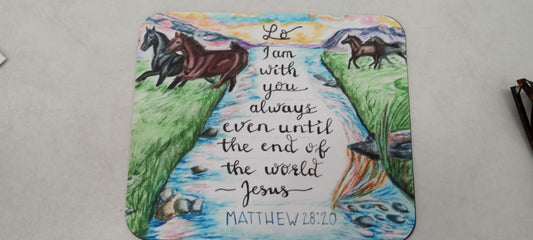 Lo
I am
with
you
always
even until
the end of
the world
—Jesus—
MATTHEW 28:20